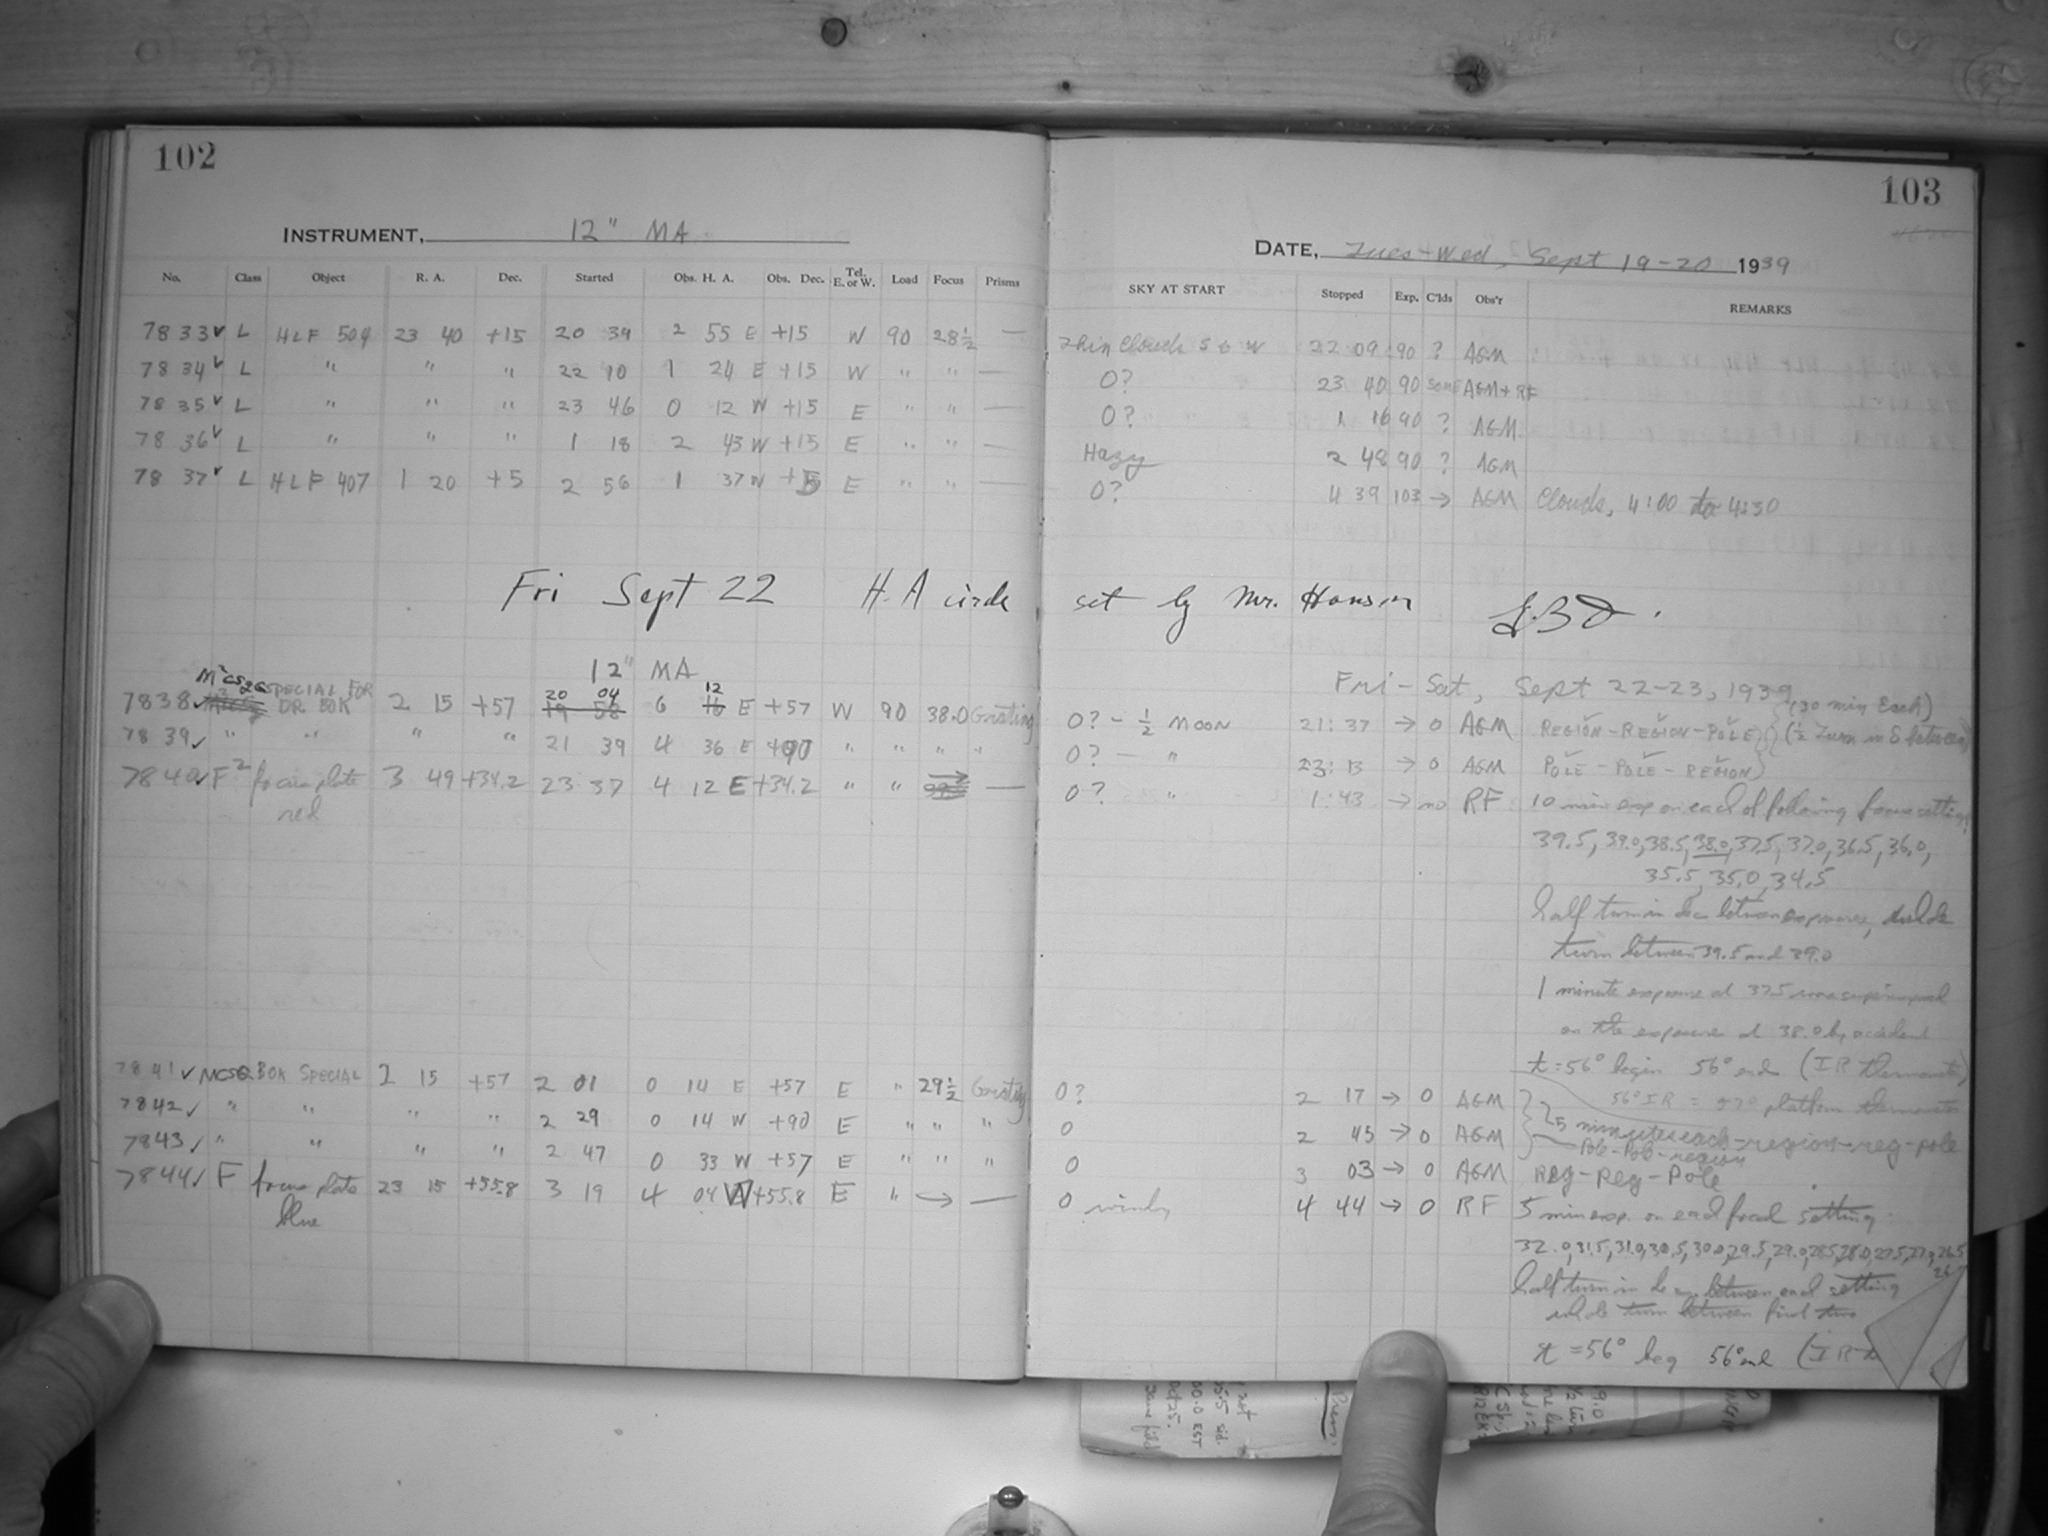 102
INSTRUMENT, 12" MA
No. Class Object R. A. Dec. Started Obs. H. A. Obs. Dec. Tel. E. or W. Load Focus Prisms
7833 ✓ L HLF 504 23 40 +15 20 39 2 55 E +15 W 90 28½ —
7834 ✓ L " " " 22 10 1 24 E +15 W " " —
7835 ✓ L " " " 23 46 0 12 W +15 E " " —
7836 ✓ L " " " 1 18 2 43 W +15 E " " —
7837 ✓ L HLF 407 1 20 +5 2 56 1 37 W +5 E " " —
Fri Sept 22 H.A circle
12" MA
7838 ✓ SPECIAL FOR DR BOK 2 15 +57 20 04 6 12 E +57 W 90 38.0 Grating
7839 ✓ " " " " 21 39 4 36 E +90 " " " "
7840 ✓ F² focus plate 3 49 +34.2 23 37 4 12 E +34.2 " " → —
red
7841 ✓ MCSQ BOK SPECIAL 2 15 +57 2 01 0 14 E +57 E " 29½ Grating
7842 ✓ " " " " 2 29 0 14 W +90 E " " "
7843 ✓ " " " " 2 47 0 33 W +57 E " " "
7844 ✓ F focus plate 23 15 +55.8 3 19 4 04 W +55.8 E " → —
blue
103
DATE, Tues + Wed, Sept 19-20 1939
SKY AT START Stopped Exp. C'lds Obs'r REMARKS
Thin Clouds S & W 22 09 90 ? AGM
0? 23 40 90 SOME AGM+RF
0? 1 16 90 ? AGM
Hazy 2 48 90 ? AGM
0? 4 39 103 → AGM Clouds, 4:00 to 4:30
set by Mr. Hansen
Fri - Sat, Sept 22-23, 1939
(30 min Each)
0? - ½ MOON 21:37 → 0 AGM REGION-REGION-POLE (½ Turn in δ between)
0? - " 23:13 → 0 AGM POLE - POLE - REGION
0? " 1:43 → no RF 10 min exp on each of following focus settings
39.5, 39.0, 38.5, 38.0, 37.5, 37.0, 36.5, 36.0,
35.5, 35.0, 34.5
half turn in dec between exposures, whole
turn between 39.5 and 39.0
1 minute exposure at 37.5 was superimposed
on the exposure at 38.0 by accident
t = 56° begin 56° end (IR thermometer)
56° IR = 57° platform thermometer
0? 2 17 → 0 AGM
0 2 45 → 0 AGM 5 minutes each - region - reg - pole
Pole - Pole - region
0 3 03 → 0 AGM Reg - Reg - Pole
0 windy 4 44 → 0 RF 5 min exp. on each focal setting
32.0, 31.5, 31.0, 30.5, 30.0, 29.5, 29.0, 28.5, 28.0, 27.5, 27.0, 26.5
26
half turn in dec between each setting
whole turn between first two
t = 56° beg 56° end (IR